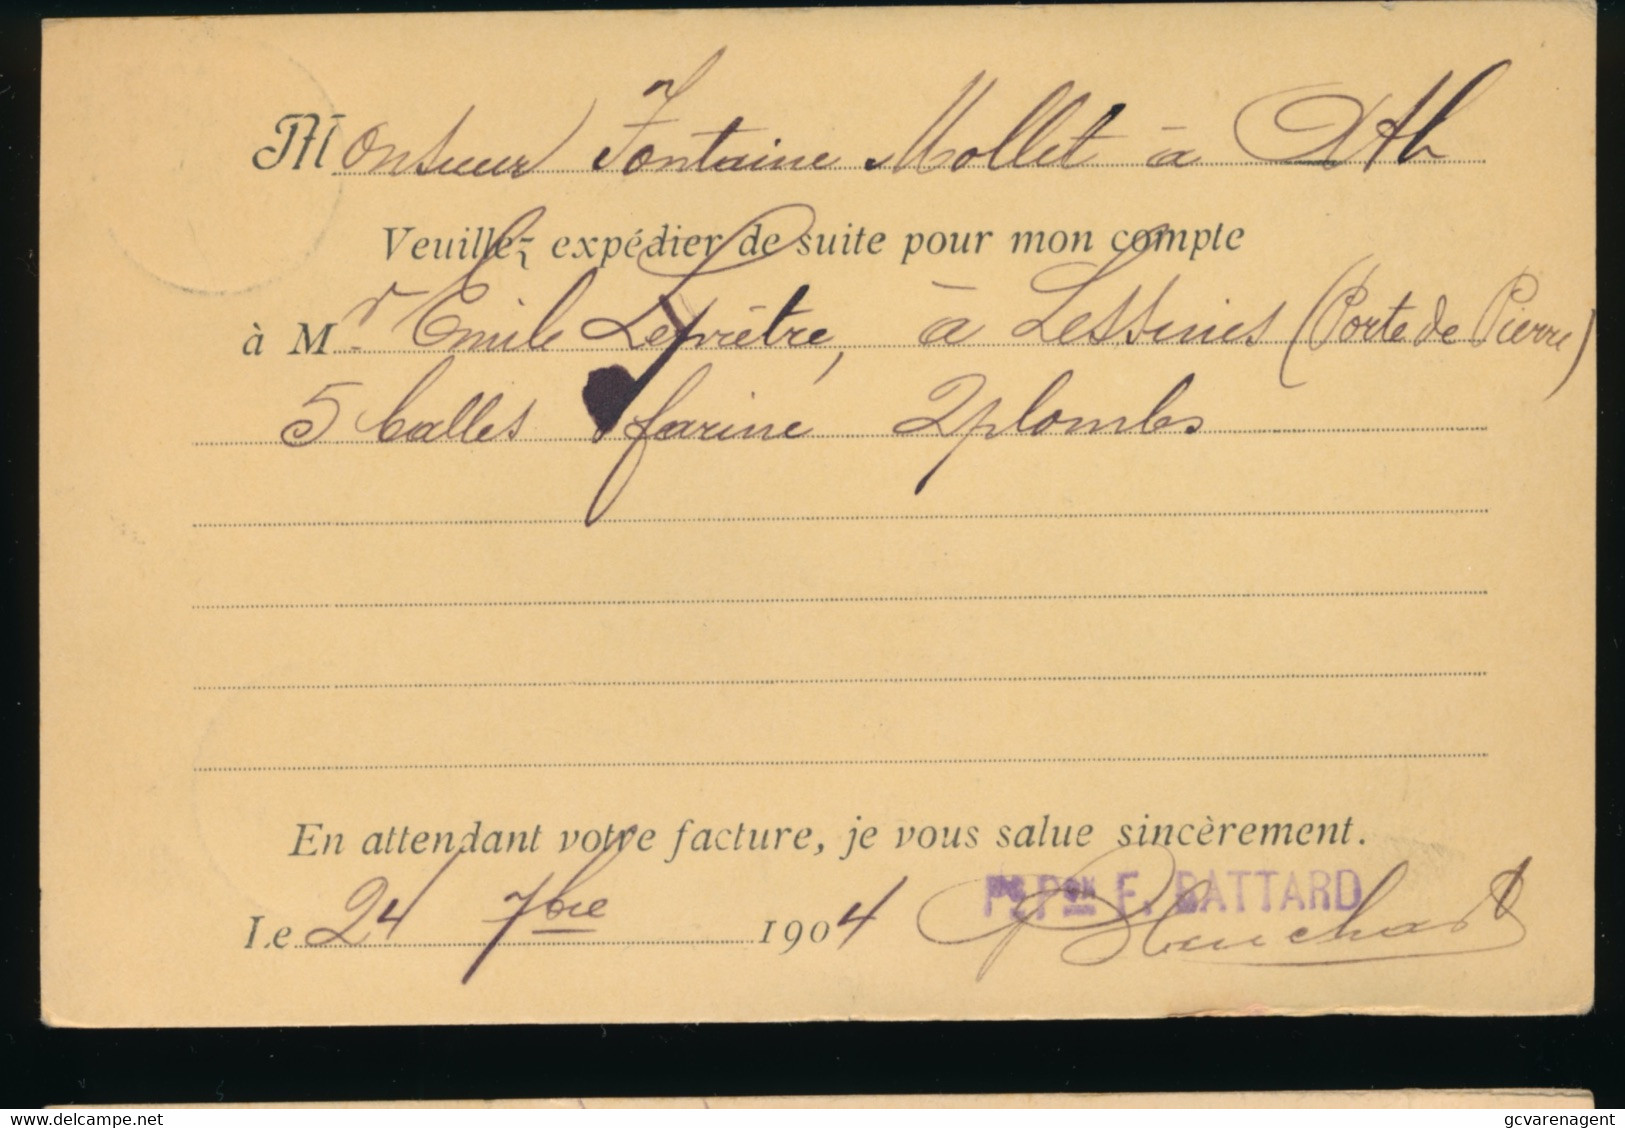 Monsieur Fontaine Mollet à Ath
Veuillez expédier de suite pour mon compte
à Mr Emile Leprêtre, à Lessines (Porte de Pierre)
5 balles farine 2 plombs
En attendant votre facture, je vous salue sincèrement.
Le 24 7bre 1904
Ps Pon F. BATTARD
delcampe.net
gcvarenagent